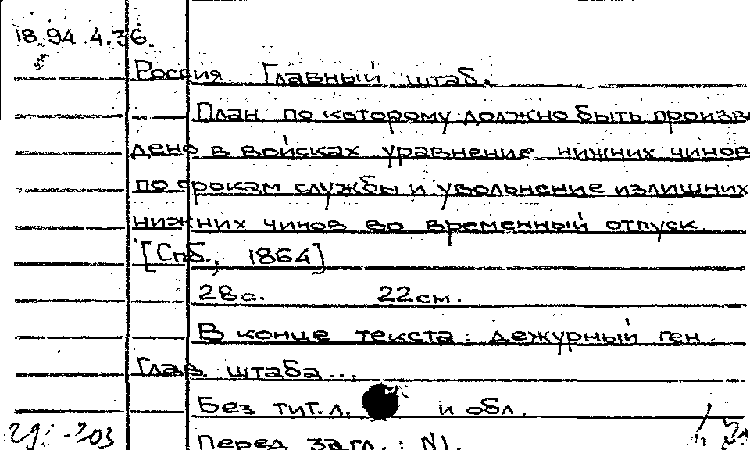 18.94.4.36.
Россия Главный штаб.
План по которому должно быть произве
дено в войсках уравнение нижних чинов
по срокам службы и увольнение излишних
нижних чинов во временный отпуск.
[Спб., 1864]
28с. 22см.
В конце текста: дежурный ген.
Глав. штаба...
Без тит.л. и обл.
Перед загл.: N1.